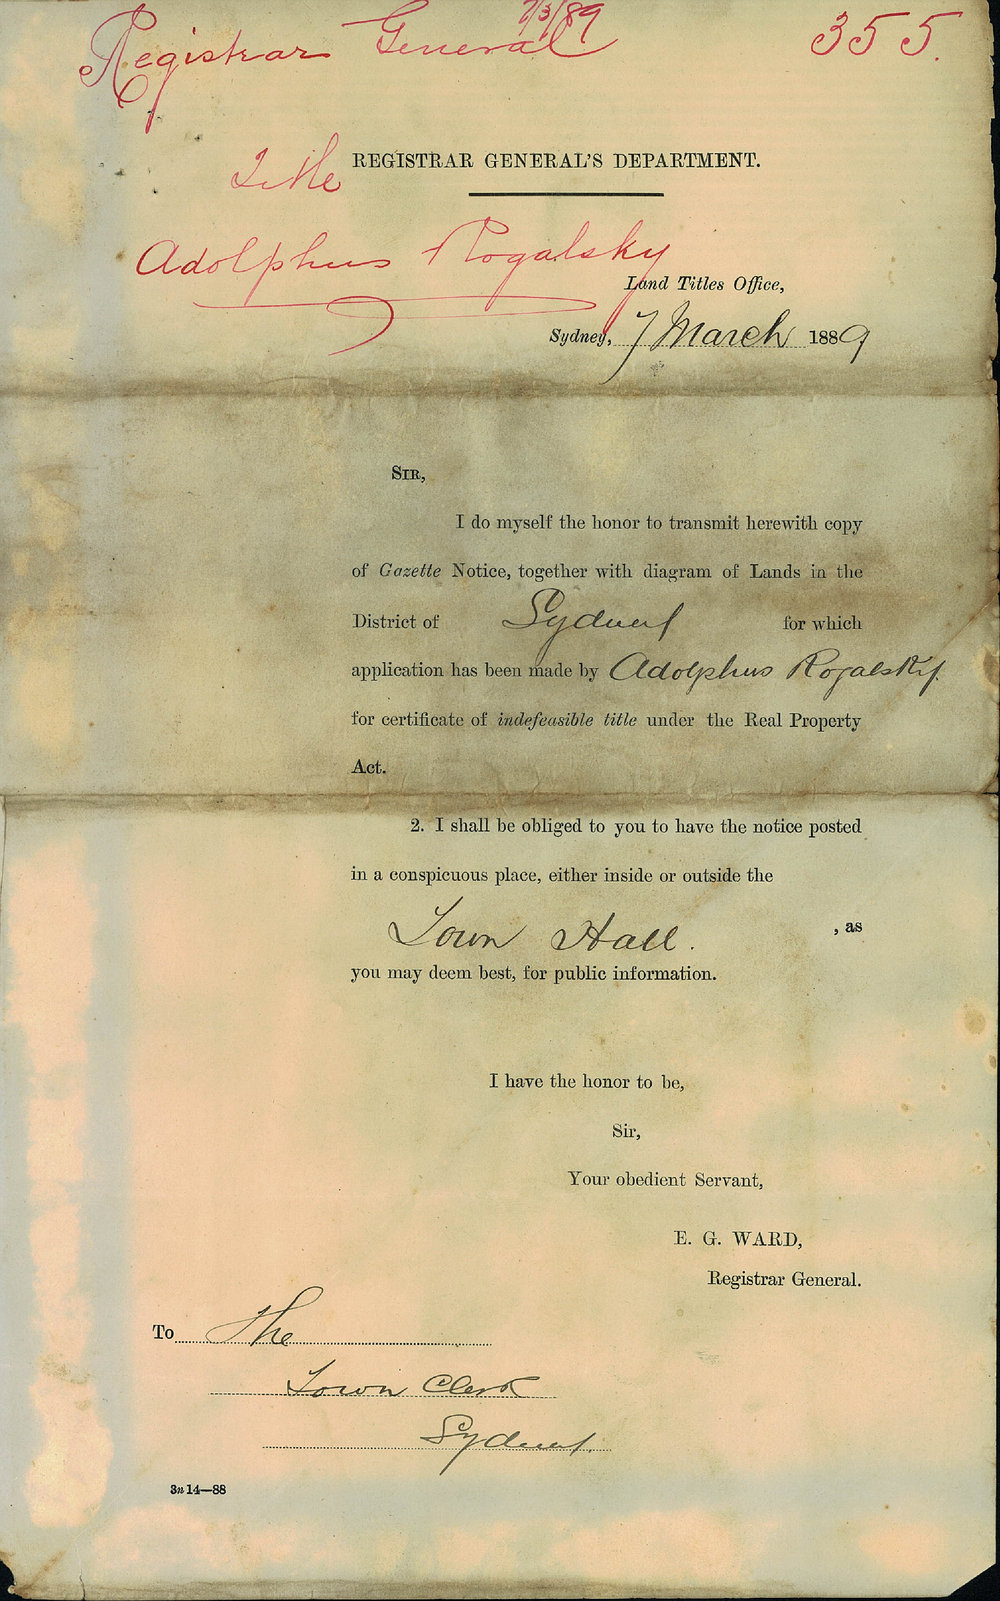 7/3/89
Registrar General 355.
Title
REGISTRAR GENERAL'S DEPARTMENT.
Adolphus Rogalsky
Land Titles Office,
Sydney, 7 March 1889
SIR,
I do myself the honor to transmit herewith copy
of Gazette Notice, together with diagram of Lands in the
District of Sydney for which
application has been made by Adolphus Rogalsky.
for certificate of indefeasible title under the Real Property
Act.
2. I shall be obliged to you to have the notice posted
in a conspicuous place, either inside or outside the
Town Hall. , as
you may deem best, for public information.
I have the honor to be,
Sir,
Your obedient Servant,
E. G. WARD,
Registrar General.
To The
Town Clerk
Sydney.
3n 14—88